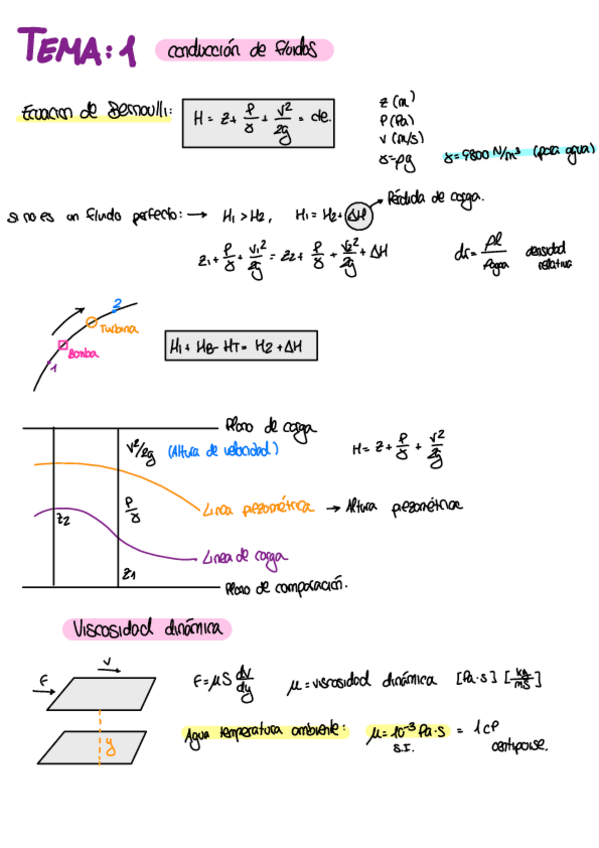 TEMA: 1 conducción de fluidos
Ecuacion de Bernoulli: H = z + P/γ + v²/2g = cte.
z (m)
P (Pa)
v (m/s)
γ = ρg γ = 9800 N/m³ (para agua)
si no es un fluido perfecto: → H₁ > H₂, H₁ = H₂ + ΔH → Pérdida de carga.
z₁ + P/γ + v₁²/2g = z₂ + P/γ + v₂²/2g + ΔH dr = ρl/ρagua densidad relativa
2
Turbina
Bomba
1
H₁ + HB - HT = H₂ + ΔH
Plano de carga
v²/2g (Altura de velocidad) H = z + P/γ + v²/2g
Linea piezométrica → Altura piezométrica
P/γ
z₂
Linea de carga
z₁
Plano de comparación.
Viscosidad dinámica
F V F = μS dv/dy μ = viscosidad dinámica [Pa·s] [kg/ms]
y
Agua temperatura ambiente: μ = 10⁻³ Pa·s = 1 cP
S.I. centipoise.